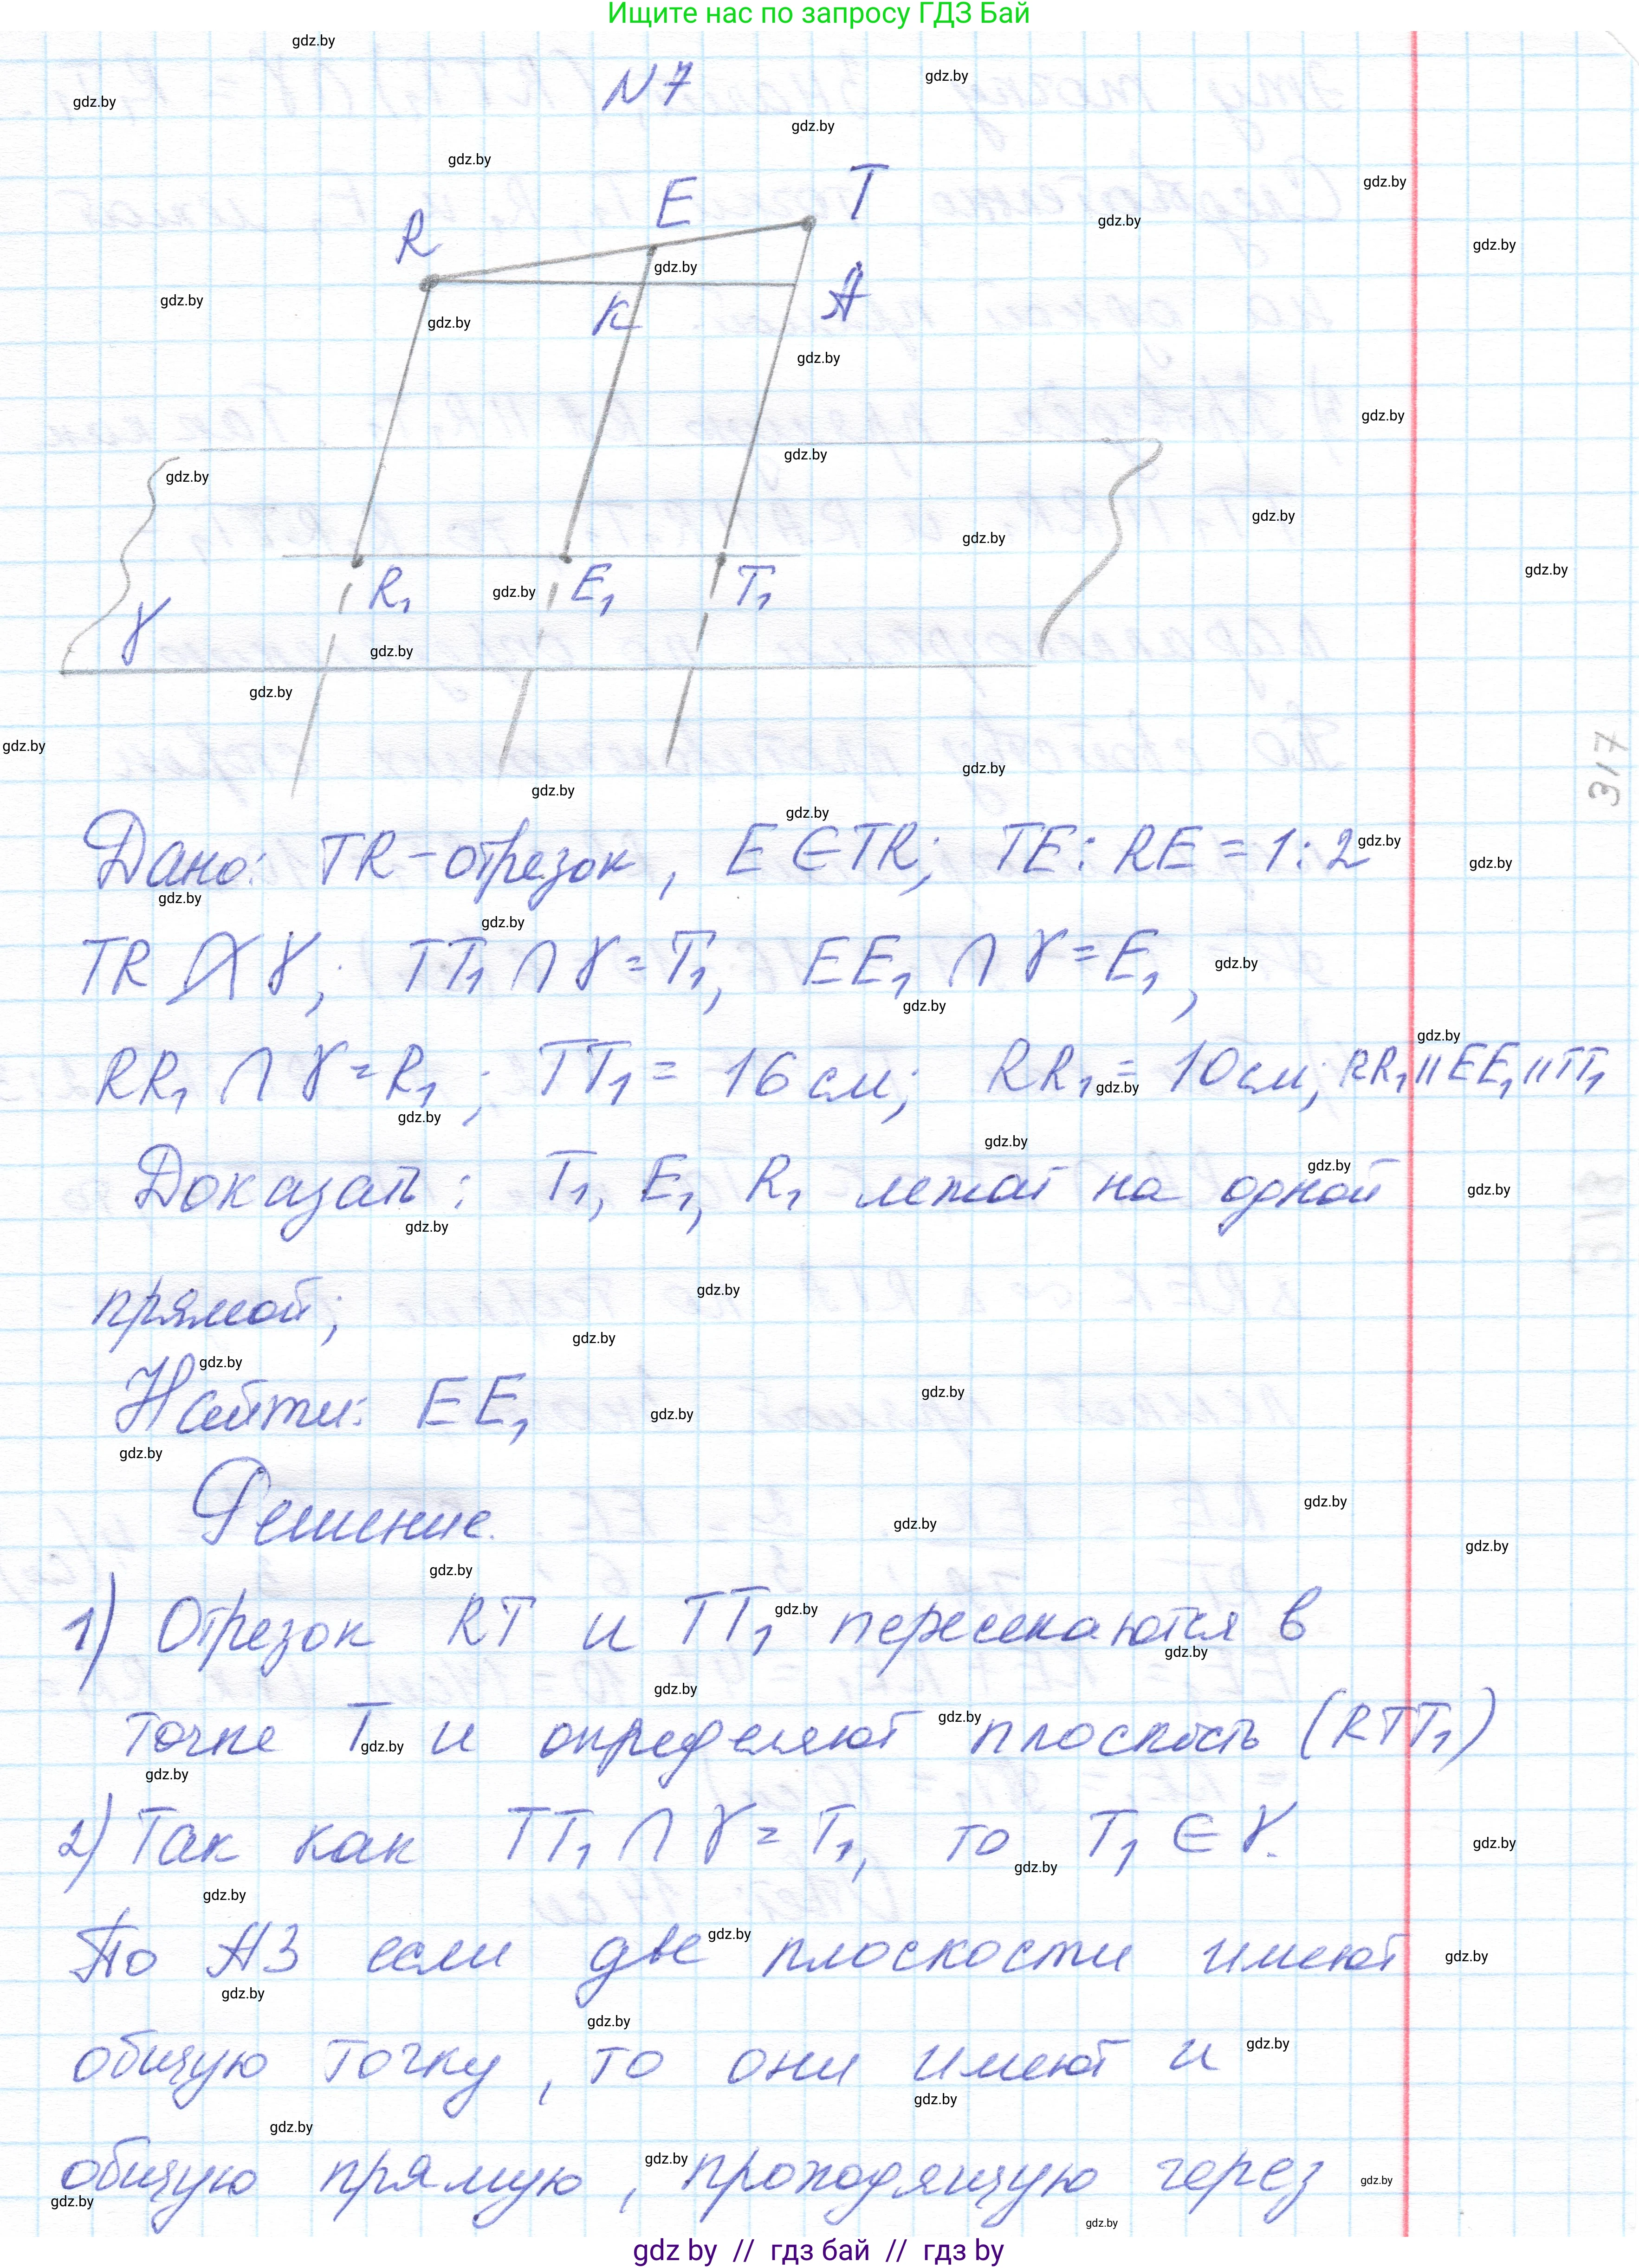 Ищите нас по запросу ГДЗ Бай
N 7
R E T
K A
R₁ E₁ T₁
γ
317
Дано: TR – отрезок, E ∈ TR; TE : RE = 1 : 2
TR ⊄ γ; TT₁ ∩ γ = T₁, EE₁ ∩ γ = E₁,
RR₁ ∩ γ = R₁; TT₁ = 16 см; RR₁ = 10 см; RR₁ || EE₁ || TT₁
Доказать: T₁, E₁, R₁ лежат на одной
прямой;
Найти: EE₁
Решение.
1) Отрезок RT и TT₁ пересекаются в
точке T и определяют плоскость (RTT₁)
2) Так как TT₁ ∩ γ = T₁, то T₁ ∈ γ.
По А3 если две плоскости имеют
общую точку, то они имеют и
общую прямую, проходящую через
gdz.by
gdz by // гдз бай // гдз by